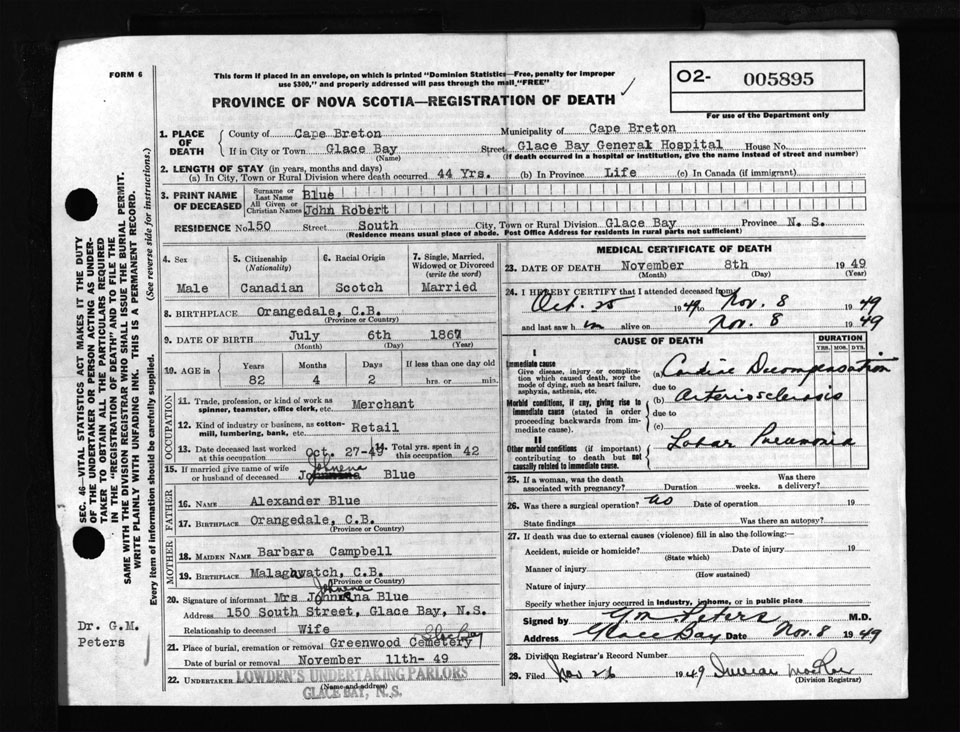 FORM 6
This form if placed in an envelope, on which is printed "Dominion Statistics—Free, penalty for improper
use $300," and properly addressed will pass through the mail "FREE"
PROVINCE OF NOVA SCOTIA—REGISTRATION OF DEATH
O2- 005895
For use of the Department only
1. PLACE OF DEATH
County of Cape Breton Municipality of Cape Breton
If in City or Town Glace Bay Street Glace Bay General Hospital House No.
(Name) (If death occurred in a hospital or institution, give the name instead of street and number)
2. LENGTH OF STAY (in years, months and days)
(a) In City, Town or Rural Division where death occurred 44 Yrs. (b) In Province Life (c) In Canada (if immigrant)
3. PRINT NAME OF DECEASED
Surname or Last Name Blue
All Given or Christian Names John Robert
RESIDENCE No. 150 Street South City, Town or Rural Division Glace Bay Province N. S.
(Residence means usual place of abode. Post Office Address for residents in rural parts not sufficient)
4. Sex Male
5. Citizenship (Nationality) Canadian
6. Racial Origin Scotch
7. Single, Married, Widowed or Divorced (write the word) Married
8. BIRTHPLACE Orangedale, C.B.
(Province or Country)
9. DATE OF BIRTH July 6th 1867
(Month) (Day) (Year)
10. AGE in Years Months Days If less than one day old
82 4 2 hrs. or min.
OCCUPATION
11. Trade, profession, or kind of work as
spinner, teamster, office clerk, etc. Merchant
12. Kind of industry or business, as cotton-
mill, lumbering, bank, etc. Retail
13. Date deceased last worked at this occupation Oct. 27-49
14. Total yrs. spent in this occupation 42
15. If married give name of wife or husband of deceased Johnena Blue
FATHER
16. NAME Alexander Blue
17. BIRTHPLACE Orangedale, C.B.
(Province or Country)
MOTHER
18. MAIDEN NAME Barbara Campbell
19. BIRTHPLACE Malagawatch, C.B.
(Province or Country)
20. Signature of informant Mrs Johnena Blue
Address 150 South Street, Glace Bay, N.S.
Relationship to deceased Wife
21. Place of burial, cremation or removal Greenwood Cemetery Glace Bay
Date of burial or removal November 11th- 49
22. UNDERTAKER LOWDEN'S UNDERTAKING PARLORS
(Name and address)
GLACE BAY, N. S.
MEDICAL CERTIFICATE OF DEATH
23. DATE OF DEATH November 8th 1949
(Month) (Day) (Year)
24. I HEREBY CERTIFY that I attended deceased from
Oct. 25 1949 Nov. 8 1949
and last saw him alive on Nov. 8 1949
CAUSE OF DEATH
DURATION
YRS. MOS. DYS.
I
Immediate cause
Give disease, injury or complica-
tion which caused death, NOT the
mode of dying, such as heart failure,
asphyxia, asthenia, etc.
(a) Cardiac Decompensation
due to
Morbid conditions, if any, giving rise to
immediate cause (stated in order
proceeding backwards from im-
mediate cause).
(b) Arteriosclerosis
due to
(c)
II
Other morbid conditions (if important)
contributing to death but not
causally related to immediate cause.
Lobar Pneumonia
25. If a woman, was the death
associated with pregnancy? Duration weeks. Was there a delivery?
26. Was there a surgical operation? no Date of operation 19
State findings Was there an autopsy?
27. If death was due to external causes (violence) fill in also the following:—
Accident, suicide or homicide? Date of injury 19
(State which)
Manner of injury
(How sustained)
Nature of injury
Specify whether injury occurred in industry, in home, or in public place
Signed by G. M. Peters M.D.
Address Glace Bay Date Nov. 8 1949
28. Division Registrar's Record Number
29. Filed Nov 26 1949
(Division Registrar)
SEC. 46—VITAL STATISTICS ACT MAKES IT THE DUTY
OF THE UNDERTAKER OR PERSON ACTING AS UNDER-
TAKER TO OBTAIN ALL THE PARTICULARS REQUIRED
IN THE "REGISTRATION OF DEATH" AND TO FILE THE
SAME WITH THE DIVISION REGISTRAR WHO SHALL ISSUE THE BURIAL PERMIT.
WRITE PLAINLY WITH UNFADING INK. THIS IS A PERMANENT RECORD.
Every item of information should be carefully supplied. (See reverse side for instructions.)
Dr. G.M.
Peters